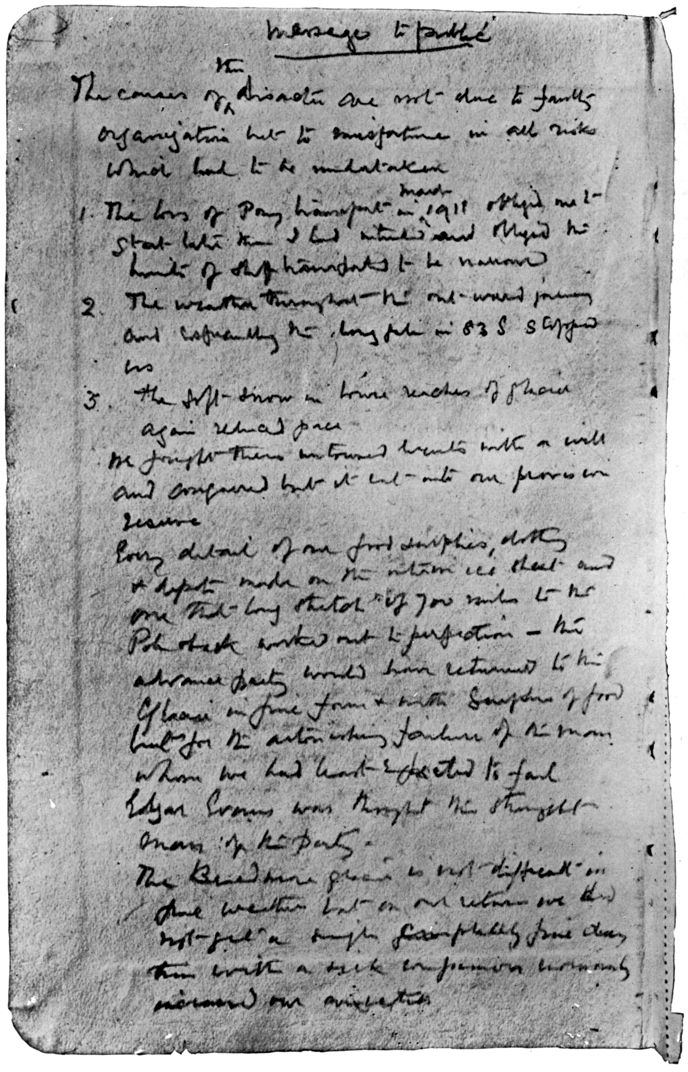 Message to public
The causes of the disaster are not due to faulty
organisation but to misfortune in all risks
which had to be undertaken
1. The loss of Pony transport in March 1911 obliged me to
start later than I had intended and obliged the
limits of stuff transported to be narrowed
2. The weather throughout the outward journey
and especially the long gale in 83 S stopped
us
3. The soft snow in lower reaches of glacier
again reduced pace
We fought these untoward events with a will
and conquered but it cut into our provision
reserve
Every detail of our food supplies, clothing
& depots made on the interior ice sheet and
over that long stretch of 700 miles to the
Pole & back worked out to perfection – the
advance party would have returned to the
Glacier in fine form & with Surplus of food
but for the astonishing failure of the man
whom we had least expected to fail
Edgar Evans was thought the strongest
man of the party.
The Beardmore glacier is not difficult in
fine weather but on our return we did
not get a single completely fine day
this with a sick companion enormously
increased our anxieties